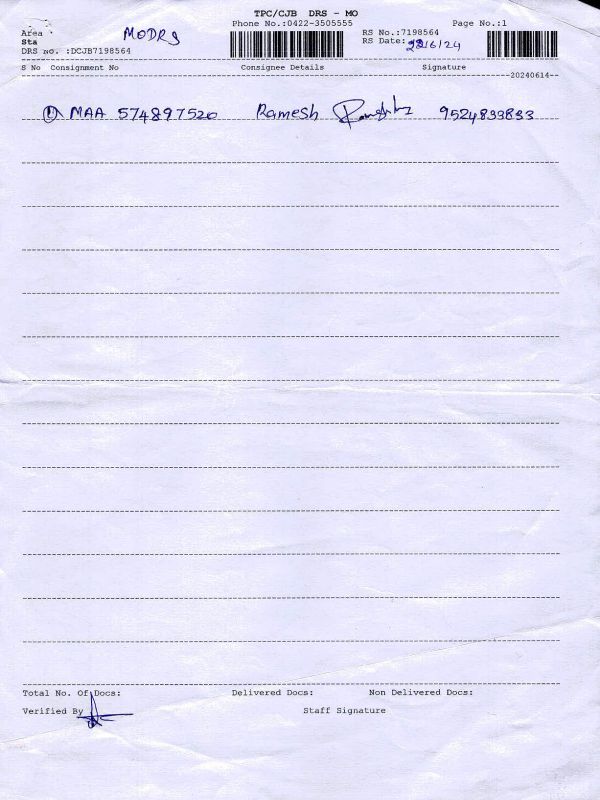 TPC/CJB DRS - MO
Phone No.:0422-3505555 Page No.:1
Area MODRS RS No.:7198564
Sta RS Date: /6/24
DRS No. :DCJB7198564
S No Consignment No Consignee Details Signature
20240614
1 MAA 574897520 Ramesh 9524833833
Total No. Of Docs: Delivered Docs: Non Delivered Docs:
Verified By Staff Signature